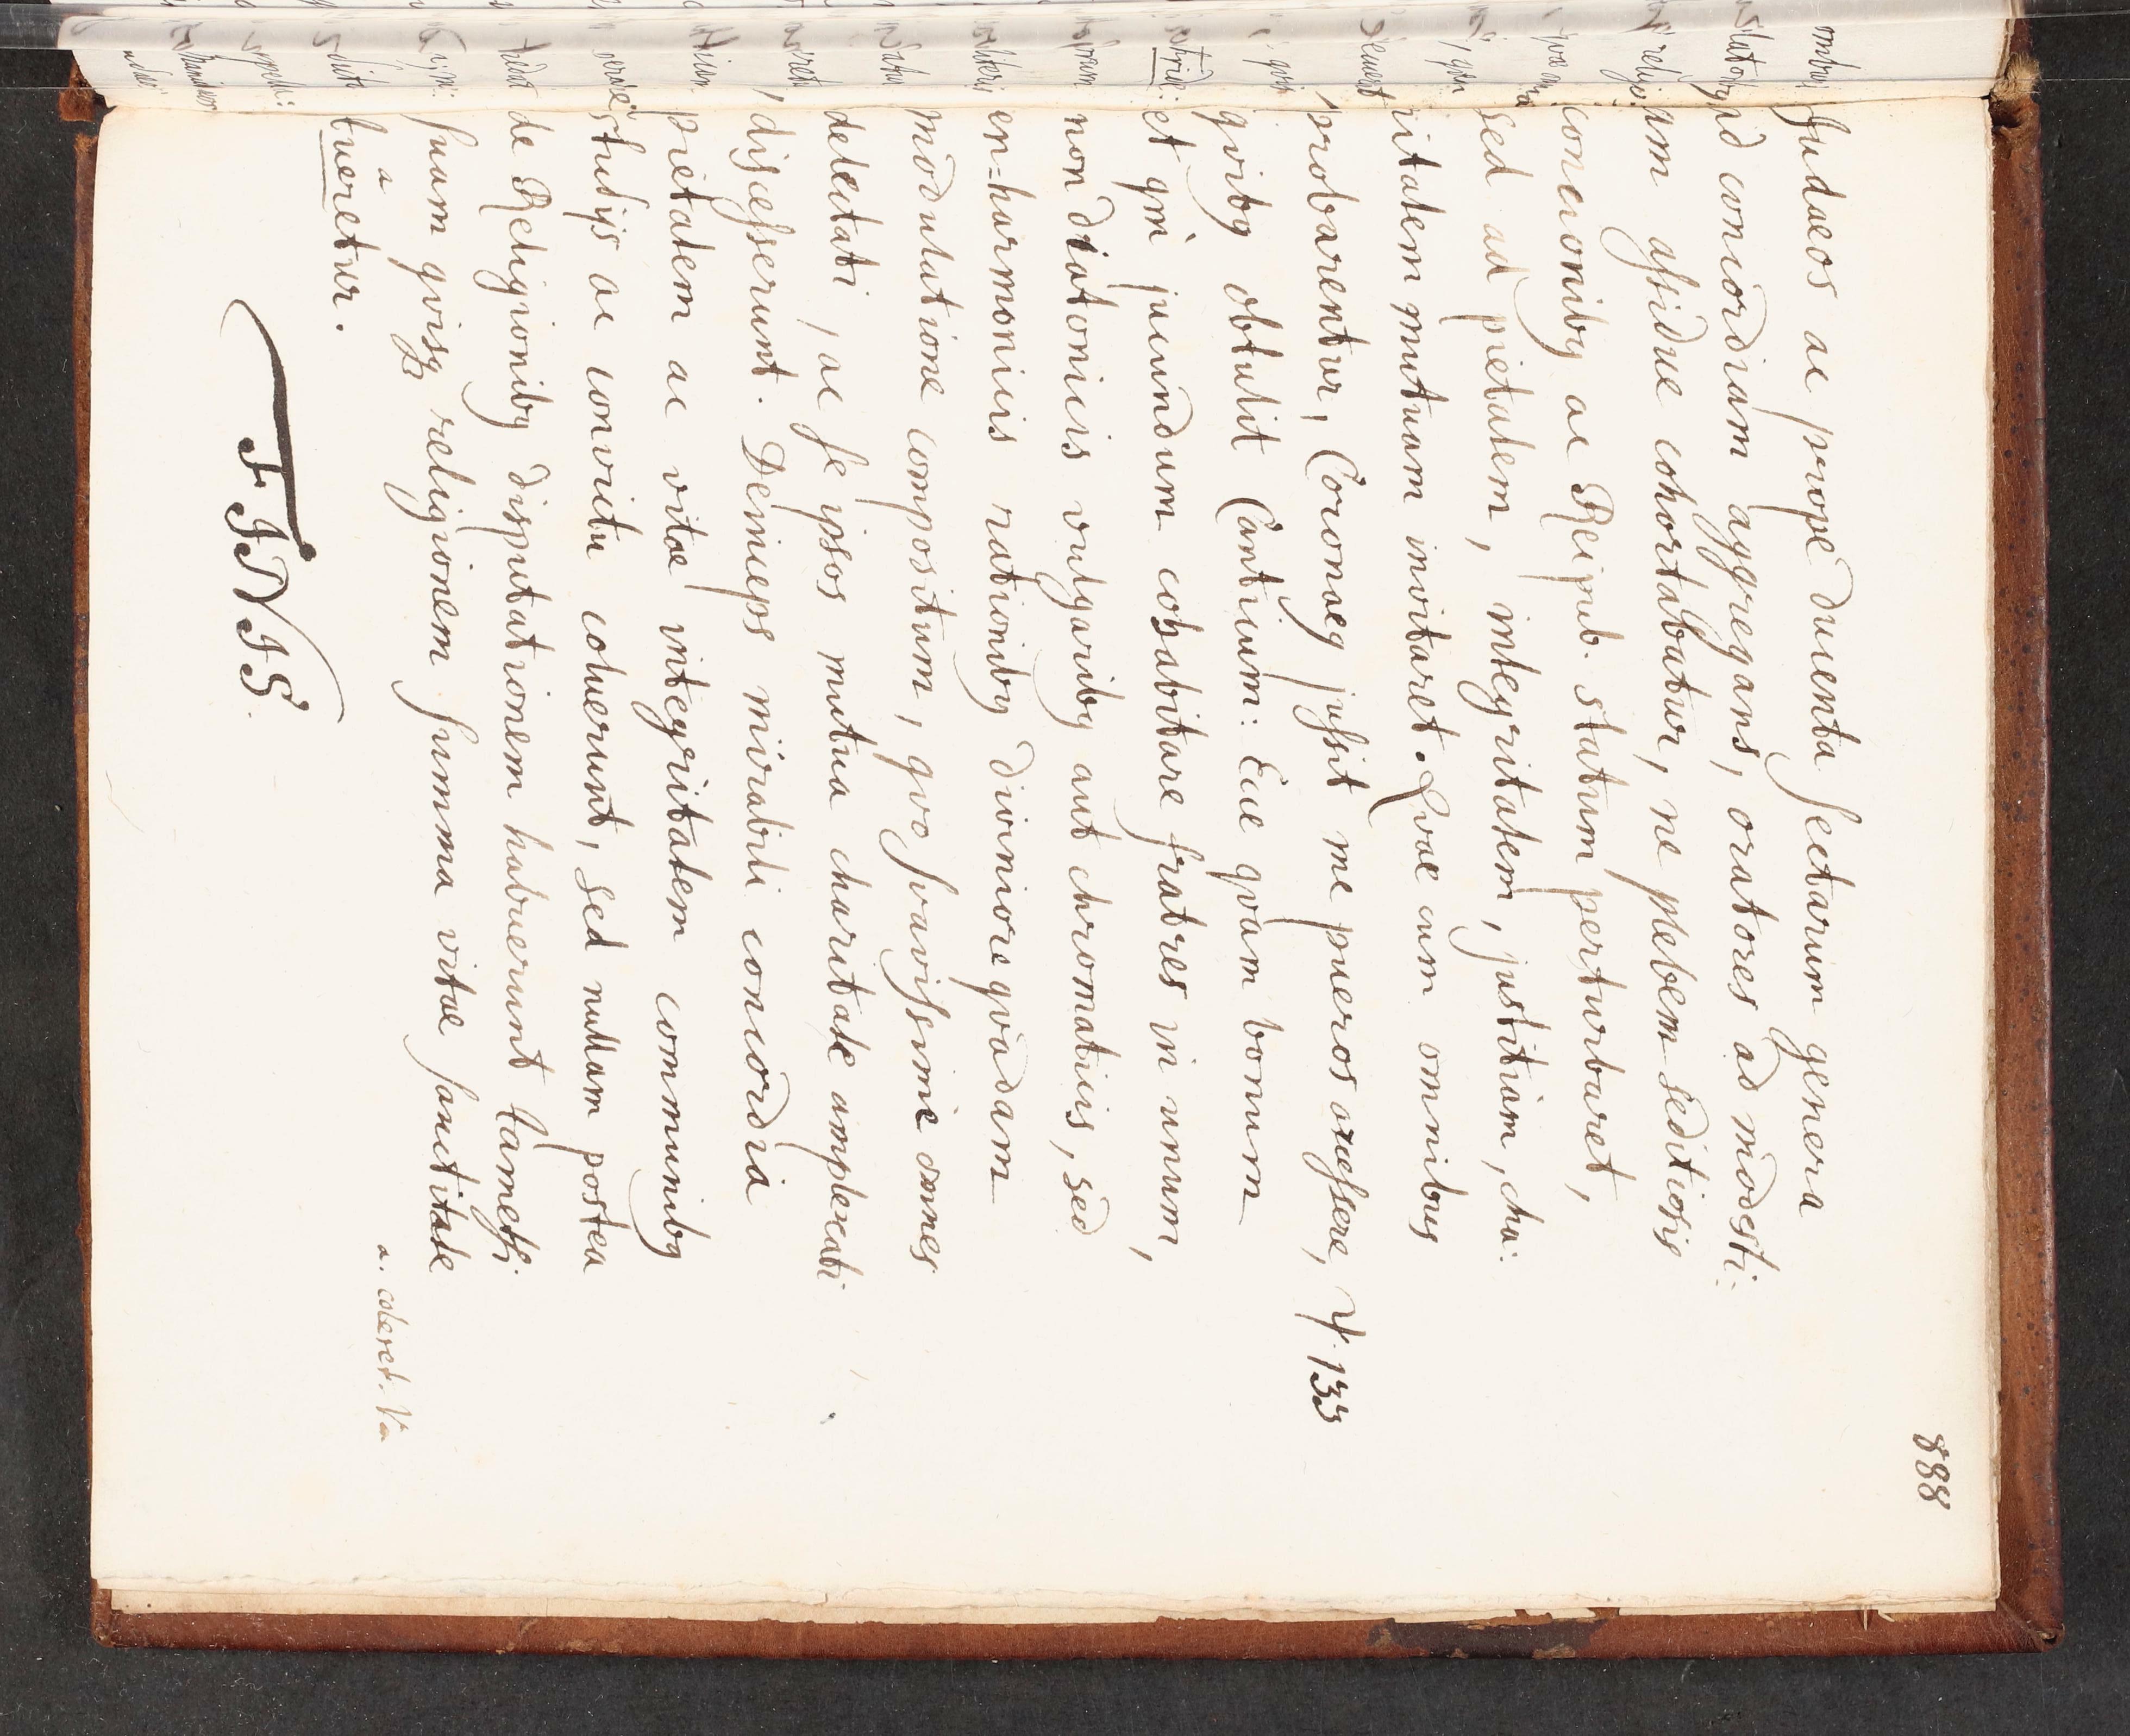 888
Judaeos ac prope ducenta sectarum genera
ad concordiam aggregans, oratores ad modesti-
am assidue cohortabatur, ne plebem seditiosis
concionibꝰ ac Reipub. statum perturbaret,
sed ad pietatem, integritatem, justitiam, cha-
ritatem mutuam invitaret. Qvae cum omnibus
probarentur, Coronaeꝰ jussit me pueros accessere, ψ. 133
qvibꝰ obtulit Canticum: Ecce qvam bonum
et qm̀ jucundum cohabitare fratres in unum,
non diatonicis vulgaribꝰ aut chromaticis, sed
en=harmonicis rationibꝰ diviniore qvadam
modulatione compositum, qvo svavissime omnes
delectati, ac se ipsos mutua charitate amplexati
discesserunt. Deinceps mirabili concordia
pietatem ac vitae integritatem communibꝰ
studijs ac convictu coluerunt, sed nullam postea
de Religionibꝰ disputationem habuerunt tametsi
suam qvisqꝫ religionem summa vitae sanctitate
a
tueretur.
a. coleret. Va
FINIS.